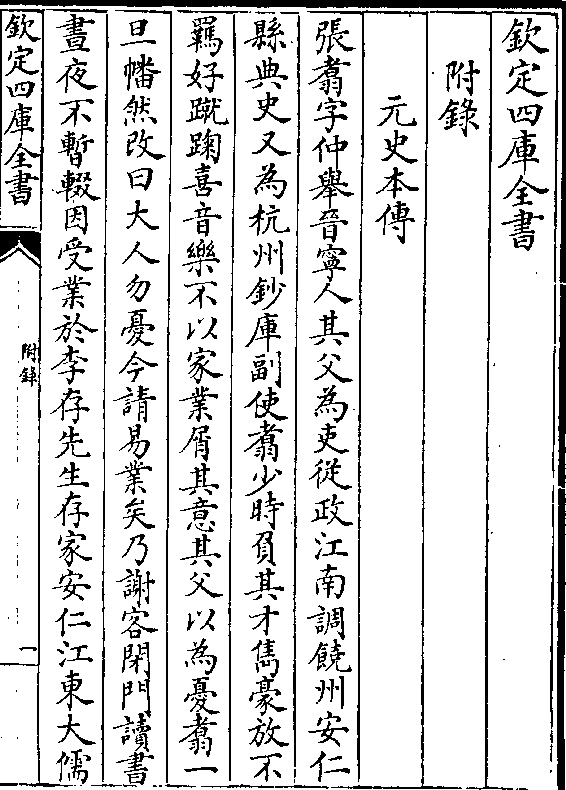 欽定四庫全書
附錄
元史本傳
張翥字仲舉晉寧人其父為吏從政江南調饒州安仁
縣典史又為杭州鈔庫副使翥少時負其才雋豪放不
羈好蹴踘喜音樂不以家業屑其意其父以為憂翥一
旦幡然改曰大人勿憂今請易業矣乃謝客閉門讀書
晝夜不暫輟因受業於李存先生存家安仁江東大儒
欽定四庫全書
附錄
一